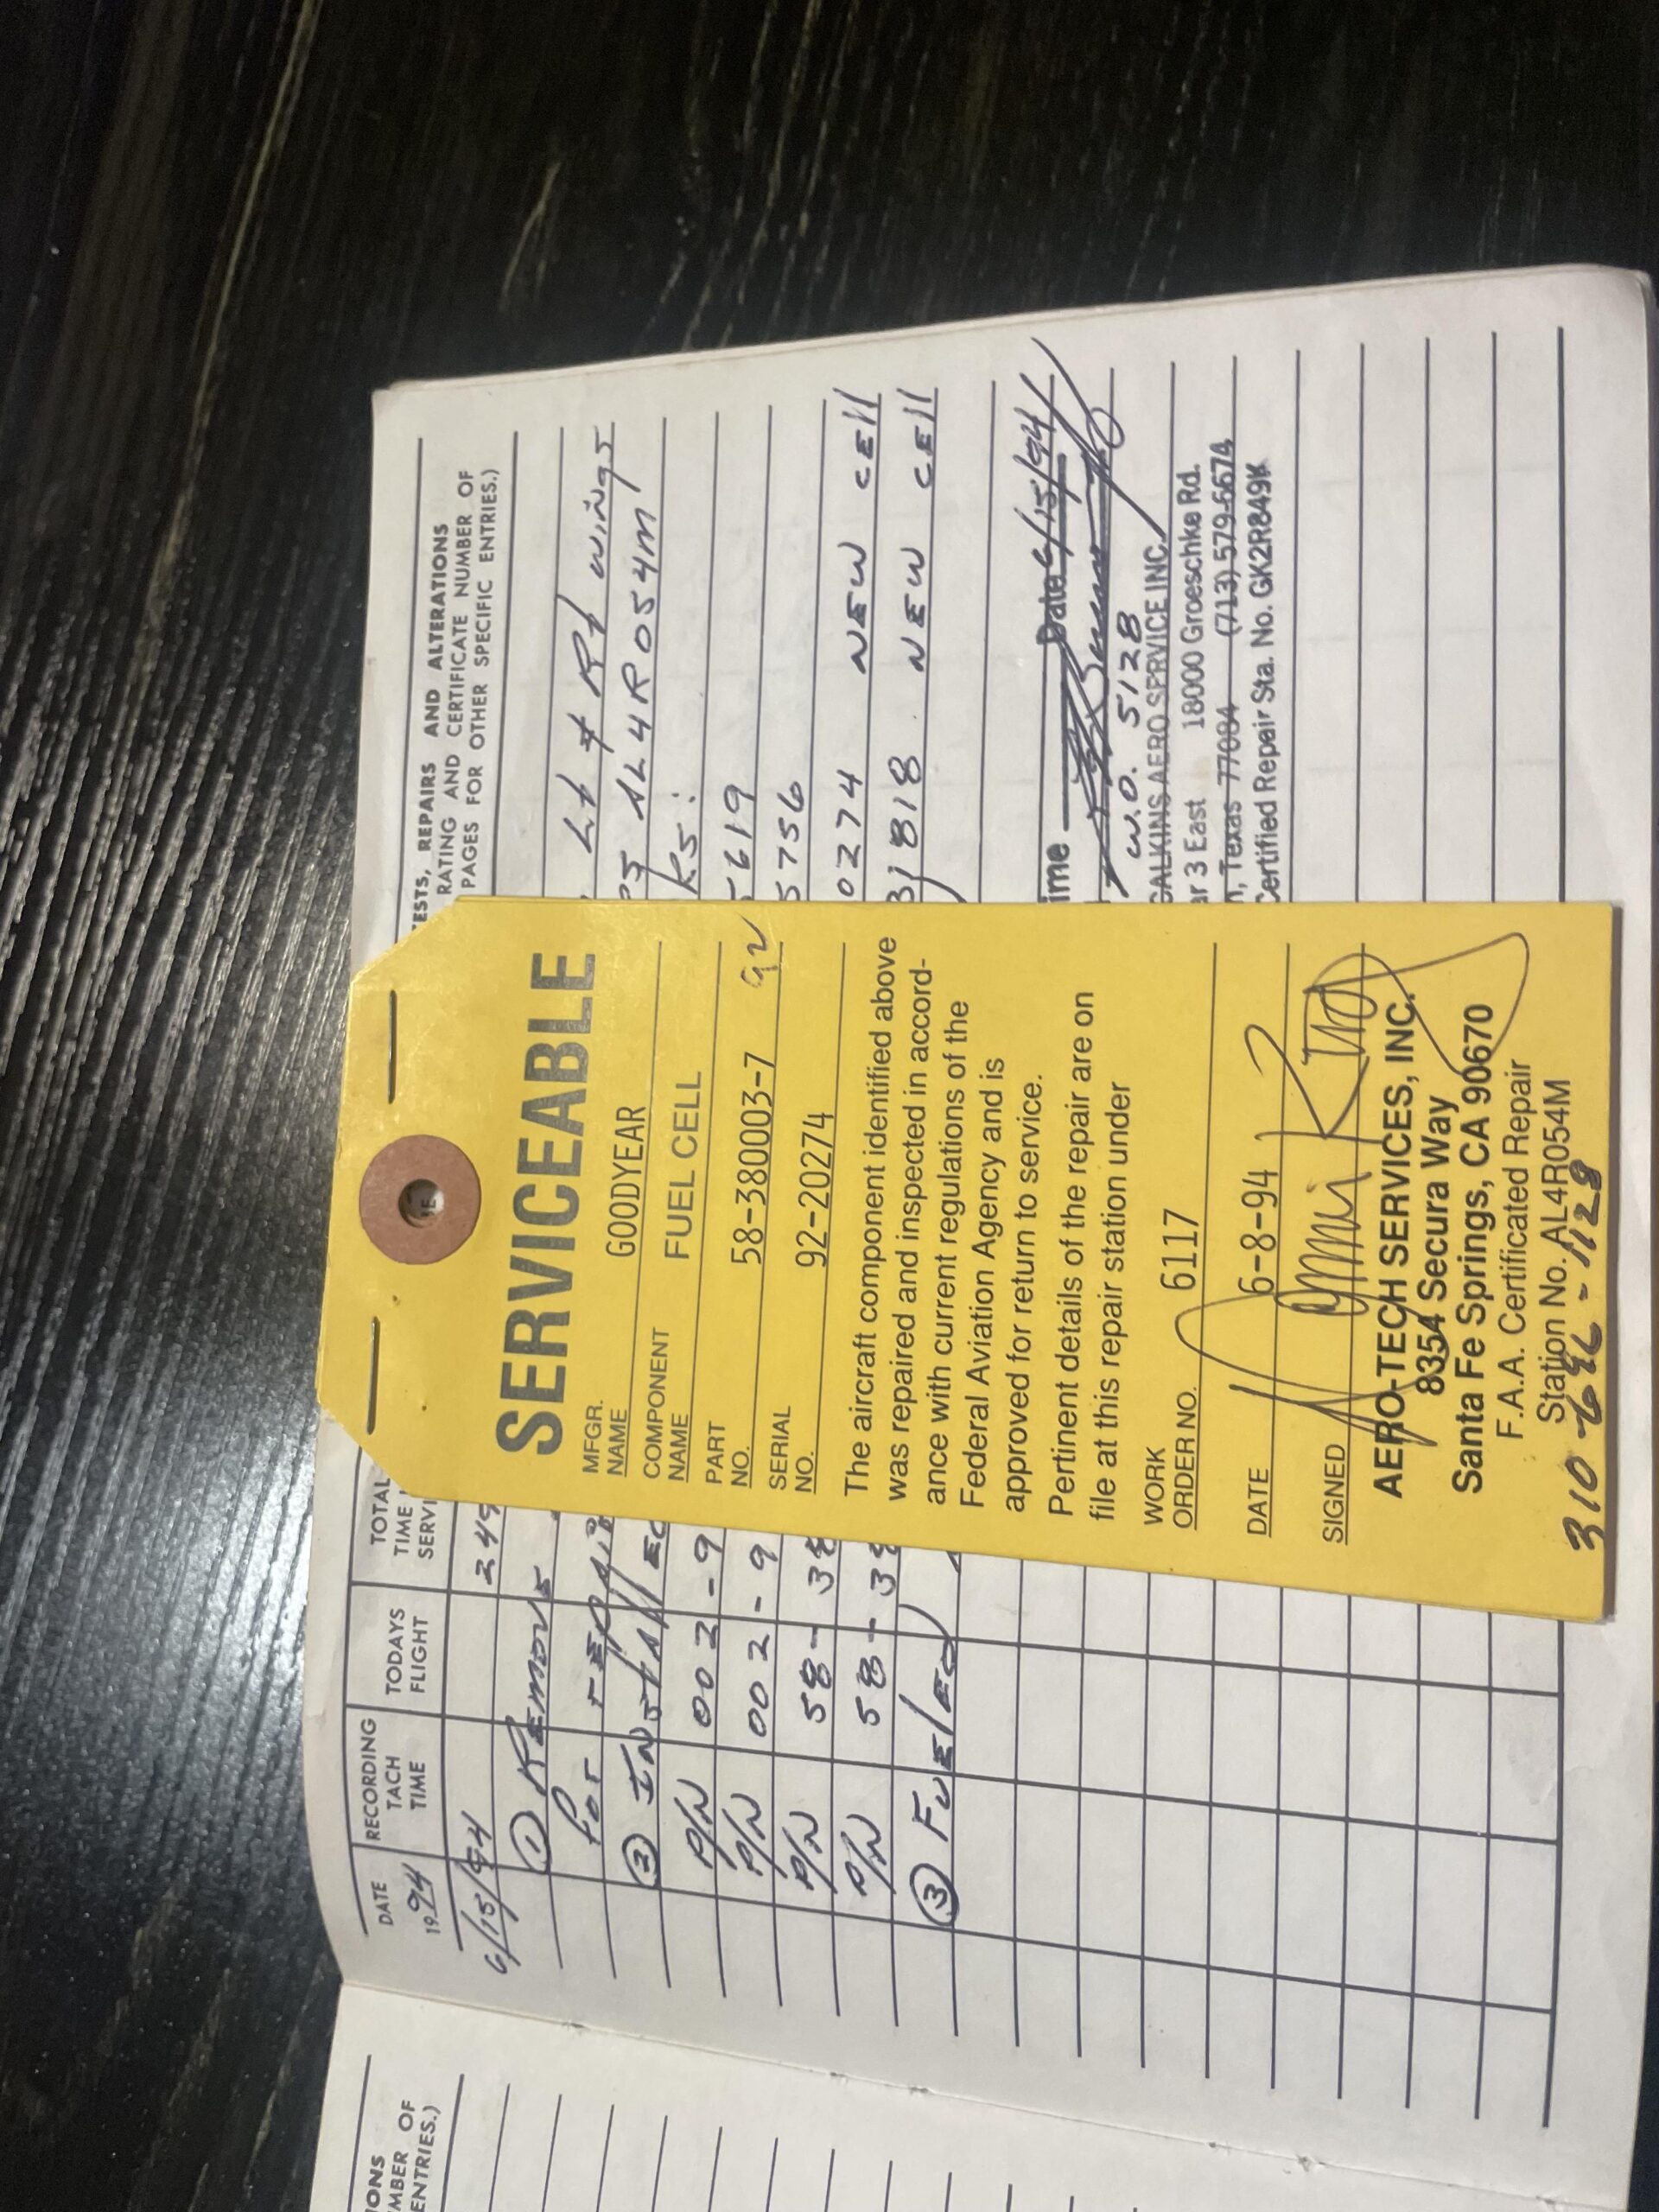 IONS
MBER OF
ENTRIES.)
DATE
1994
RECORDING
TACH
TIME
TODAYS
FLIGHT
TOTAL
TIME
SERVI
ESTS, REPAIRS AND ALTERATIONS
RATING AND CERTIFICATE NUMBER OF
PAGES FOR OTHER SPECIFIC ENTRIES.)
6/15/94 249
① Removed Lt & Rt wings
for repair AL4R054M
② Installed ks:
P/N 002-9 5619
P/N 002-9 5756
P/N 58-38 0274 NEW CELL
P/N 58-38 31818 NEW CELL
③ Fueled
ime Date 6/15/94
W.O. 5128
CALKINS AERO SERVICE INC.
ar 3 East 18000 Groeschke Rd.
n, Texas 77084 (713) 579-6674
Certified Repair Sta. No. GK2R849K
SERVICEABLE
MFGR.
NAME GOODYEAR
COMPONENT
NAME FUEL CELL
PART
NO. 58-380003-7
SERIAL
NO. 92-20274
The aircraft component identified above
was repaired and inspected in accord-
ance with current regulations of the
Federal Aviation Agency and is
approved for return to service.
Pertinent details of the repair are on
file at this repair station under
WORK
ORDER NO. 6117
DATE 6-8-94
SIGNED
AERO-TECH SERVICES, INC.
8354 Secura Way
Santa Fe Springs, CA 90670
F.A.A. Certificated Repair
Station No. AL4R054M
310-696-1128